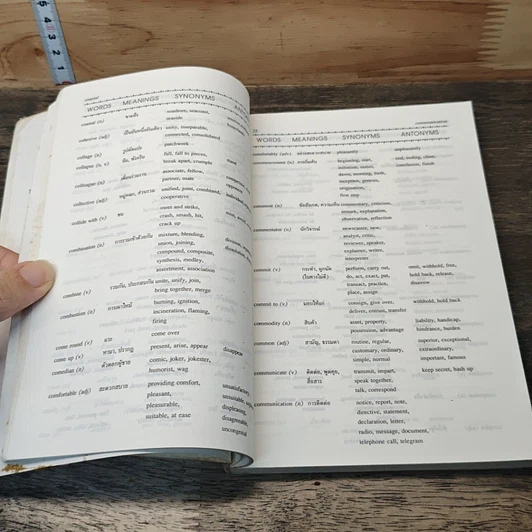 WORDS MEANINGS SYNONYMS
coastal (n)
seashore, seacoast,
seaside
collective (adj) unity, inseparable,
connected, consolidated
collage (n) patchwork
collapse (n, v) ล้ม, พังเป็น fall, fall to pieces,
break apart, crumple
colleague (n) เพื่อนร่วมงาน associate, fellow,
partner, mate
collective (adj) unified, joint, combined,
cooperative
collide with (v) ชน meet and strike,
crash, smash, hit,
crack up
combination (n) การรวมเข้าด้วยกัน mixture, blending,
union, joining,
compound, composite,
synthesis, medley,
assortment, association
combine (v) รวมกัน, ประสมกัน unite, unify, join,
bring together, merge
combustion (n) การเผาไหม้ burning, ignition,
incineration, flaming,
firing
come round (v) แวะ come over
come up (v) ปรากฏ present, arise, appear disappear
comedian (n) ตัวตลกผู้ชาย comic, joker, jokester,
humorist, wag
comfortable (adj) สะดวกสบาย providing comfort,
pleasant,
pleasurable,
suitable, at ease
WORDS MEANINGS SYNONYMS ANTONYMS
comfortably (adv) อย่างสะดวกสบาย pleasantly unpleasantly
commencement (n) การเริ่มต้น beginning, start, end, ending, close,
initiation, outset, conclusion, finish
dawn, morning, fresh,
inception, genesis,
origination,
first step
comment (n) commentary, criticism,
remark, explanation,
observation, reflection
commentator (n) นักวิจารณ์ newscaster, news
analyst, critic,
reviewer, speaker,
explainer, writer,
interpreter
commit (v) กระทำ, ผูกมัด perform, carry out, omit, withhold, free,
do, act, exact, put, hold back, release,
transact, practice, disavow
place, assign
commit to (v) มอบให้แก่ consign, give over, withhold, hold back
deliver, entrust, transfer
commodity (n) สินค้า asset, property, liability, handicap,
possession, advantage hindrance, burden
common (adj) สามัญ, ธรรมดา routine, regular, superior, exceptional,
customary, ordinary, extraordinary,
simple, normal important, famous
communicate (v) ติดต่อ, พูดคุย, transmit, impart, keep secret, hush up
สื่อสาร speak together,
talk, correspond
communication (n) การติดต่อ notice, report, note,
directive, statement,
declaration, letter,
radio, message, document,
telephone call, telegram